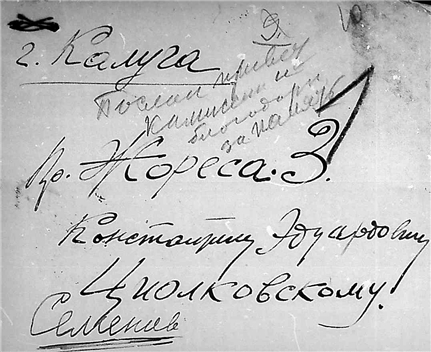 г. Калуга
Послан привет
Комиссии и
благодарн
за память
Жореса. 3.
Константину Эдуардовичу
Циолковскому.
Семенов